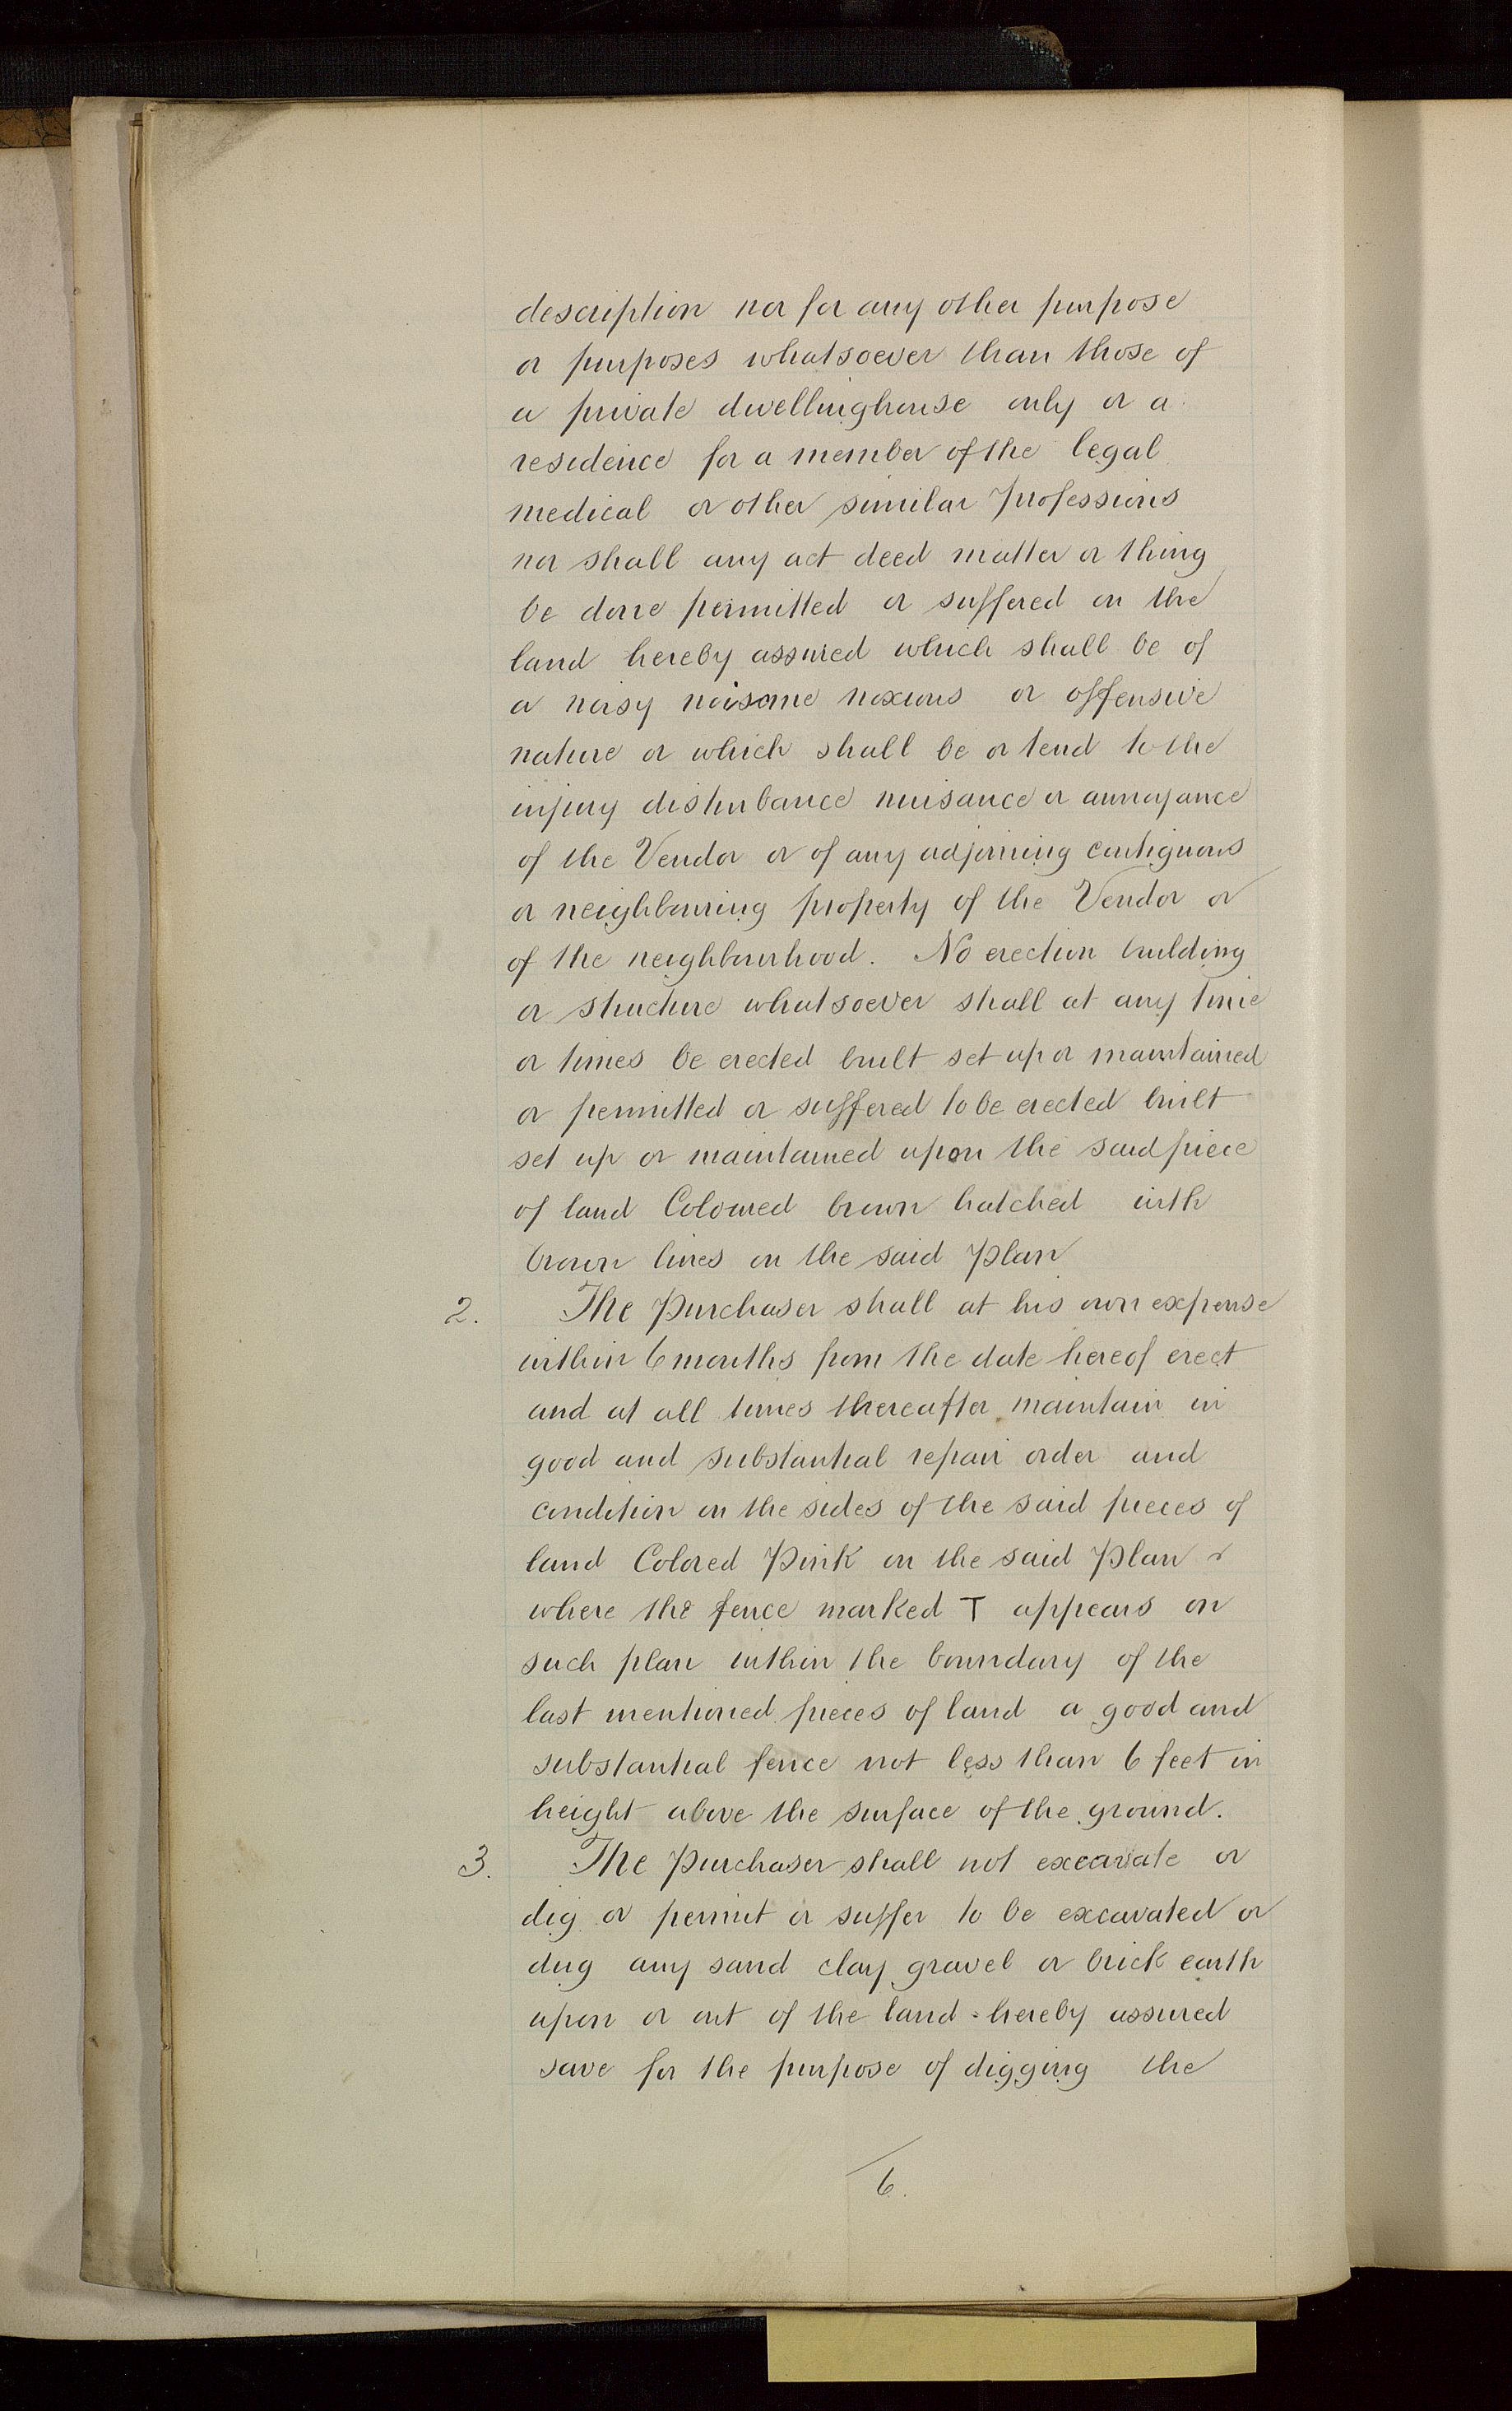 description nor for any other purpose
or purposes whatsoever than those of
a private dwellinghouse only or a
residence for a member of the legal
medical or other similar Professions
nor shall any act deed matter or thing
be done permitted or suffered on the
land hereby assured which shall be of
a noisy noisome noxious or offensive
nature or which shall be or tend to the
injury disturbance nuisance or annoyance
of the Vendor or of any adjoining contiguous
or neighbouring property of the Vendor or
of the neighbourhood. No erection building
or structure whatsoever shall at any time
or times be erected built set up or maintained
or permitted or suffered to be erected built
set up or maintained upon the said piece
of land Coloured brown hatched with
brown lines on the said Plan
2. The Purchaser shall at his own expense
within 6 months from the date hereof erect
and at all times thereafter maintain in
good and substantial repair order and
condition on the sides of the said pieces of
land Colored Pink on the said Plan &
where the fence marked T appears on
such plan within the boundary of the
last mentioned pieces of land a good and
substantial fence not less than 6 feet in
height above the surface of the ground.
3. The Purchaser shall not excavate or
dig or permit or suffer to be excavated or
dug any sand clay gravel or brick earth
upon or out of the land hereby assured
save for the purpose of digging the
6.